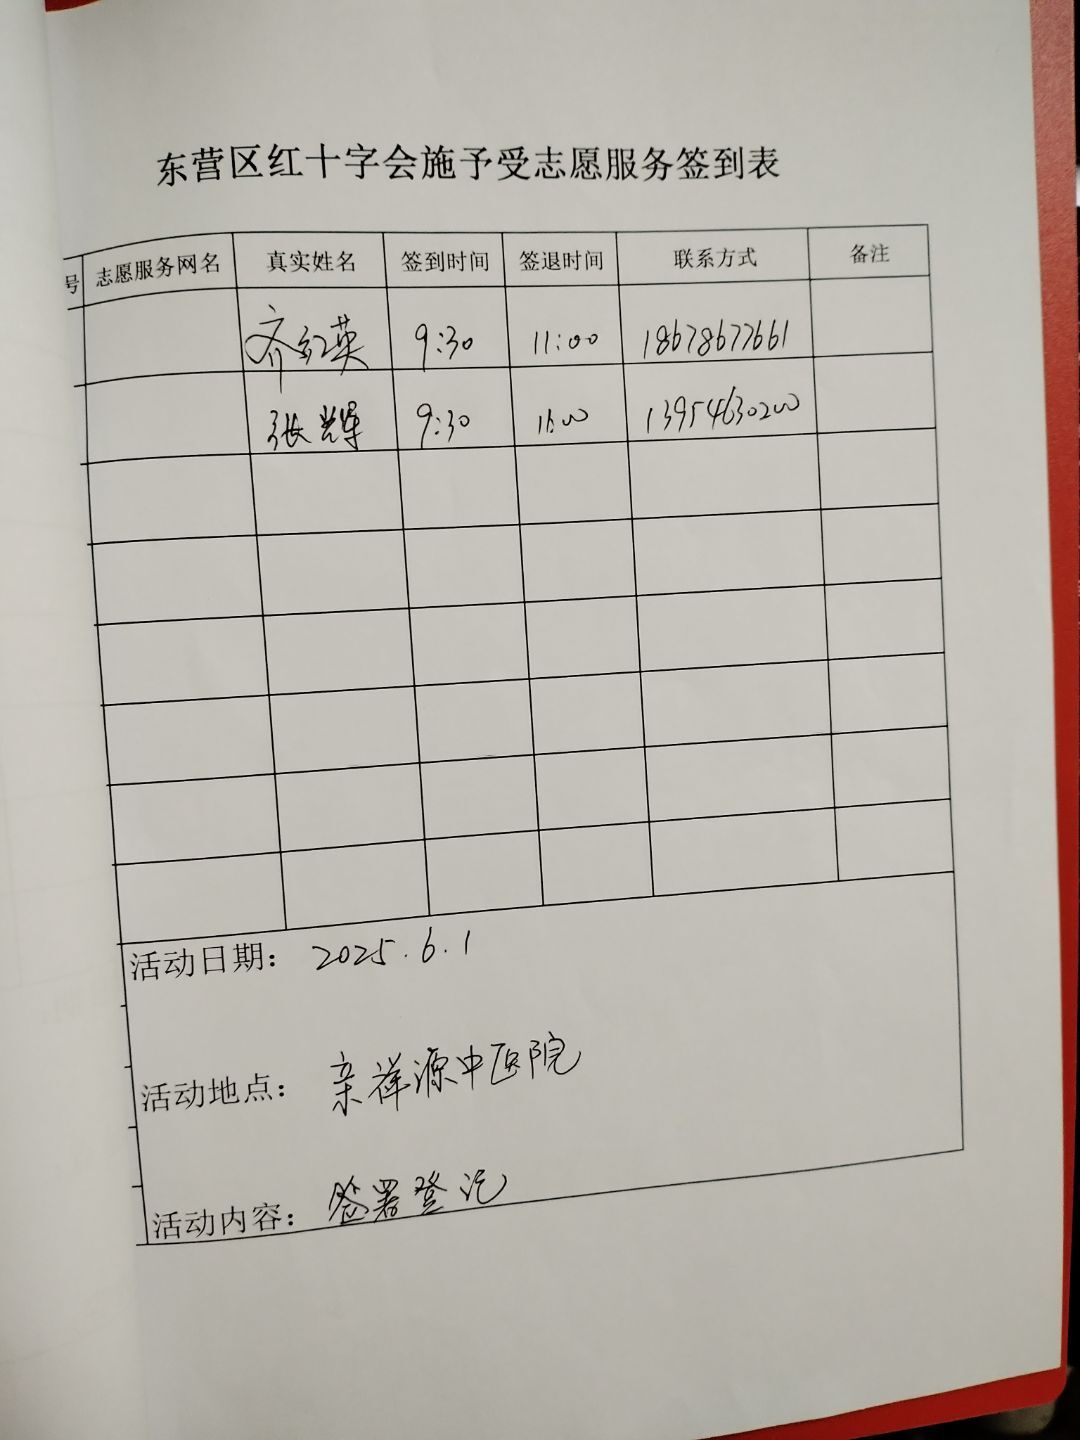 东营区红十字会施予受志愿服务签到表
号 志愿服务网名 真实姓名 签到时间 签退时间 联系方式 备注
齐红英 9:30 11:00 18678677661
张辉 9:30 11:00 13954630200
活动日期： 2025.6.1
活动地点： 亲祥源中医院
活动内容： 签署登记